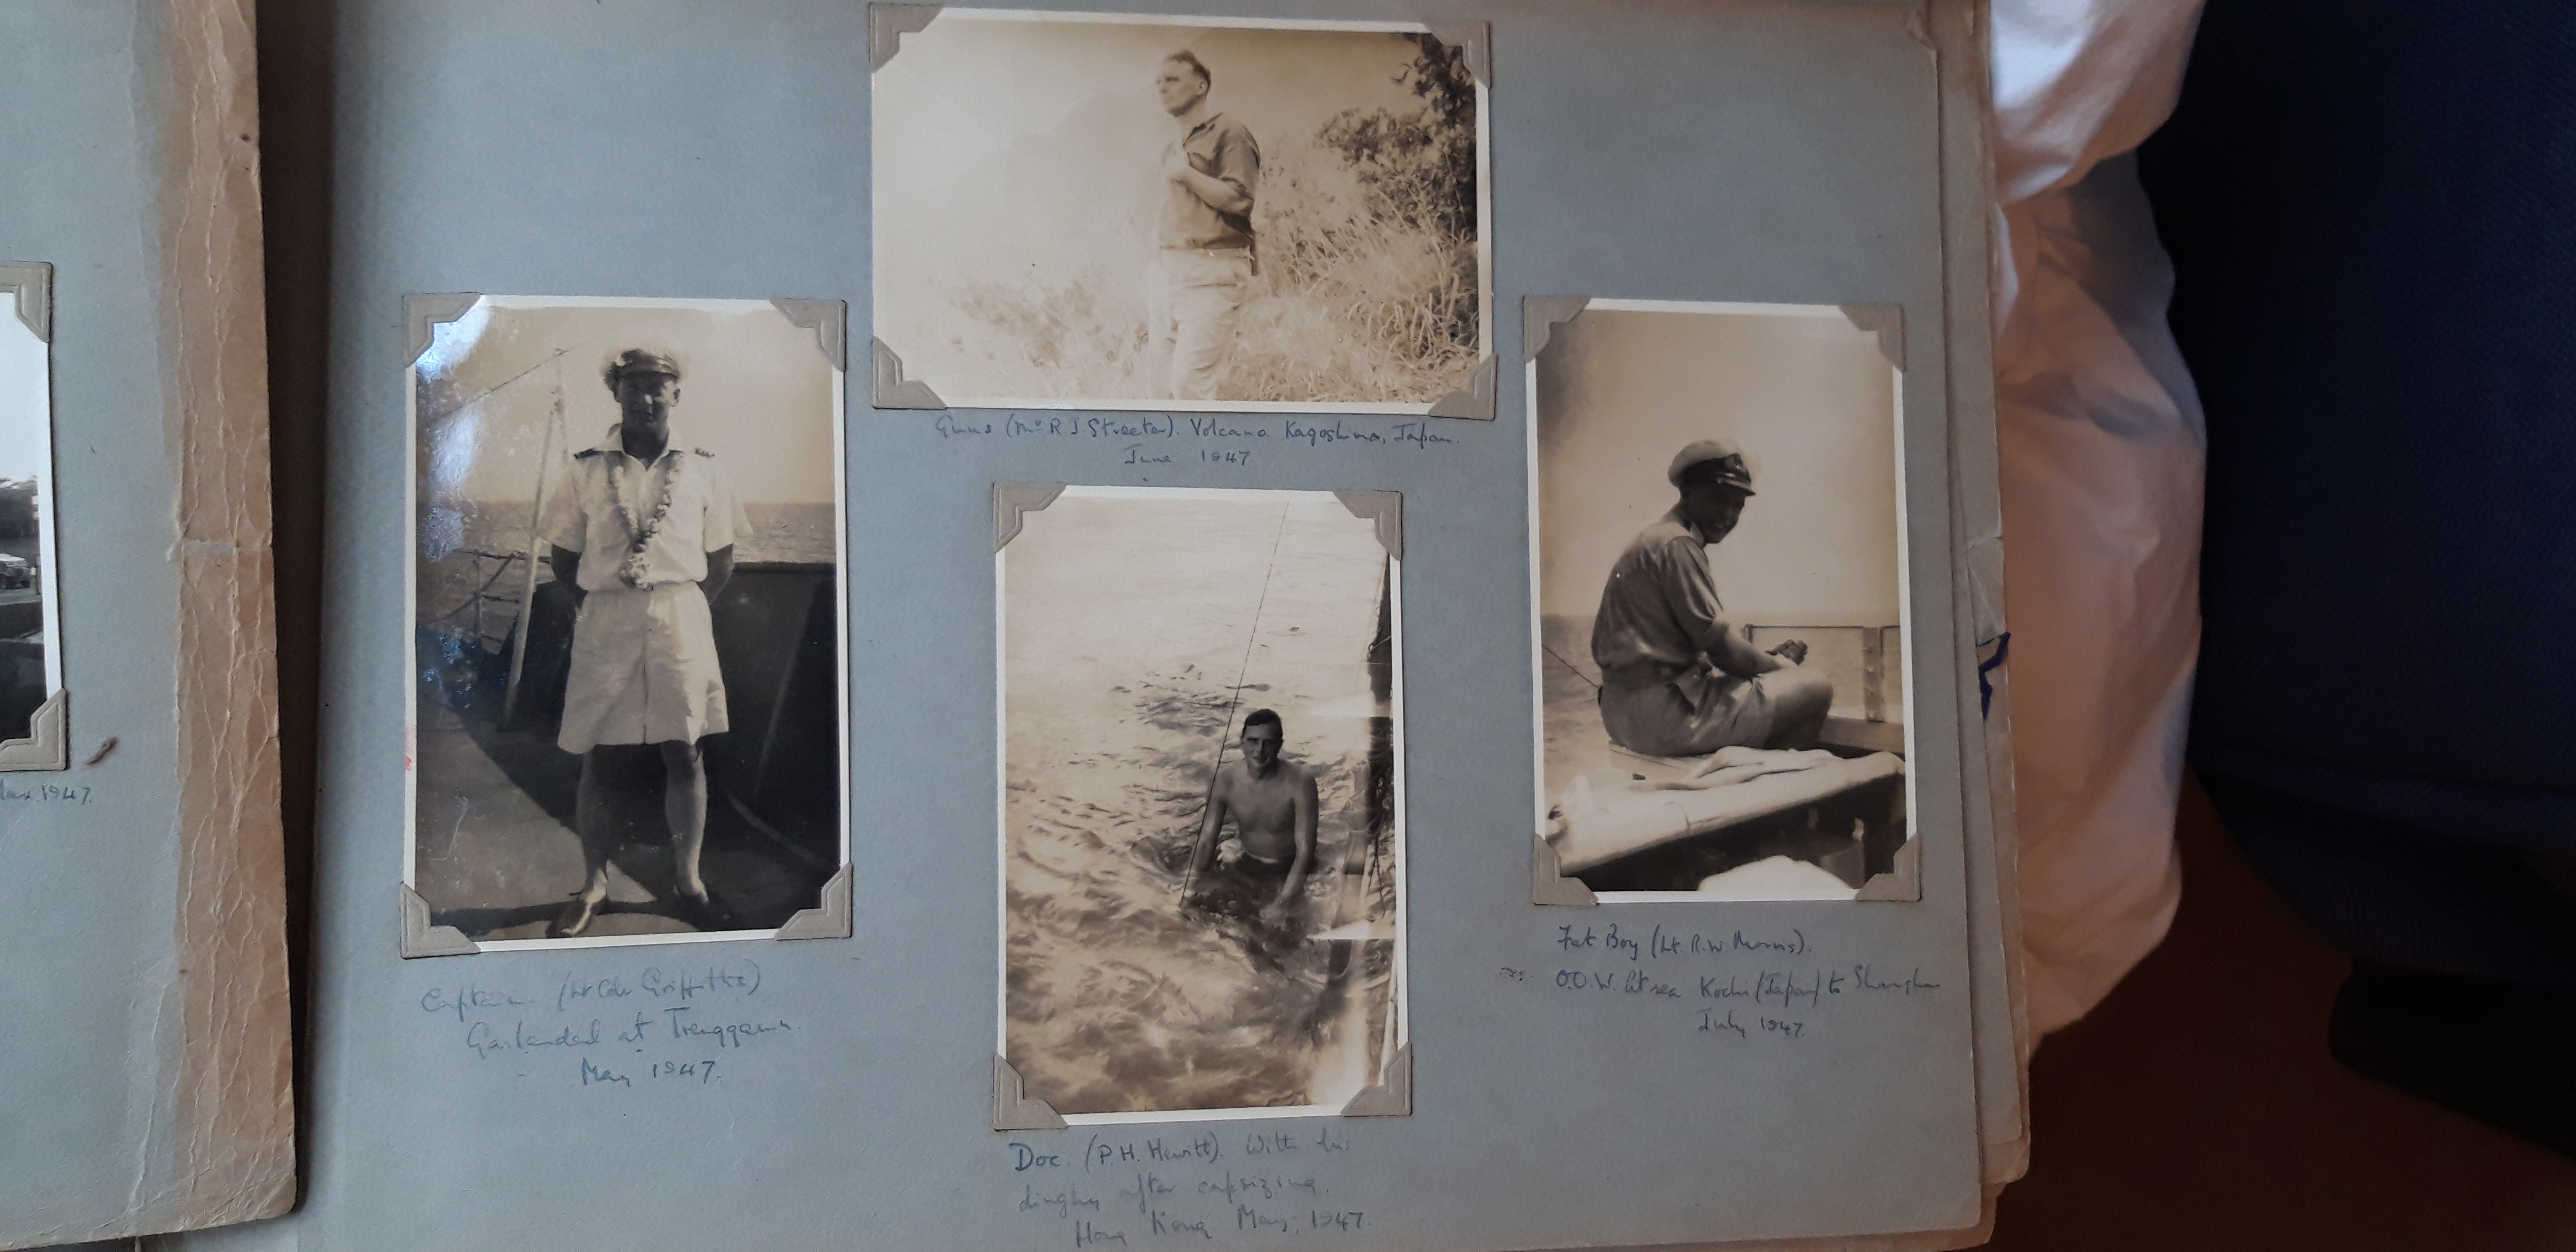 1947.
Captain (Lt Cdr Griffiths)
Garlanded at Trengganu.
May 1947.
Guns (Mr R J Streeter). Volcano Kagoshima, Japan.
June 1947.
Doc. (P.H. Hewitt). With his
dinghy after capsizing.
Hong Kong May, 1947.
Fat Boy (Lt. R.W. Morris).
as O.O.W. At sea Kochi (Japan) to Shanghai
July, 1947.